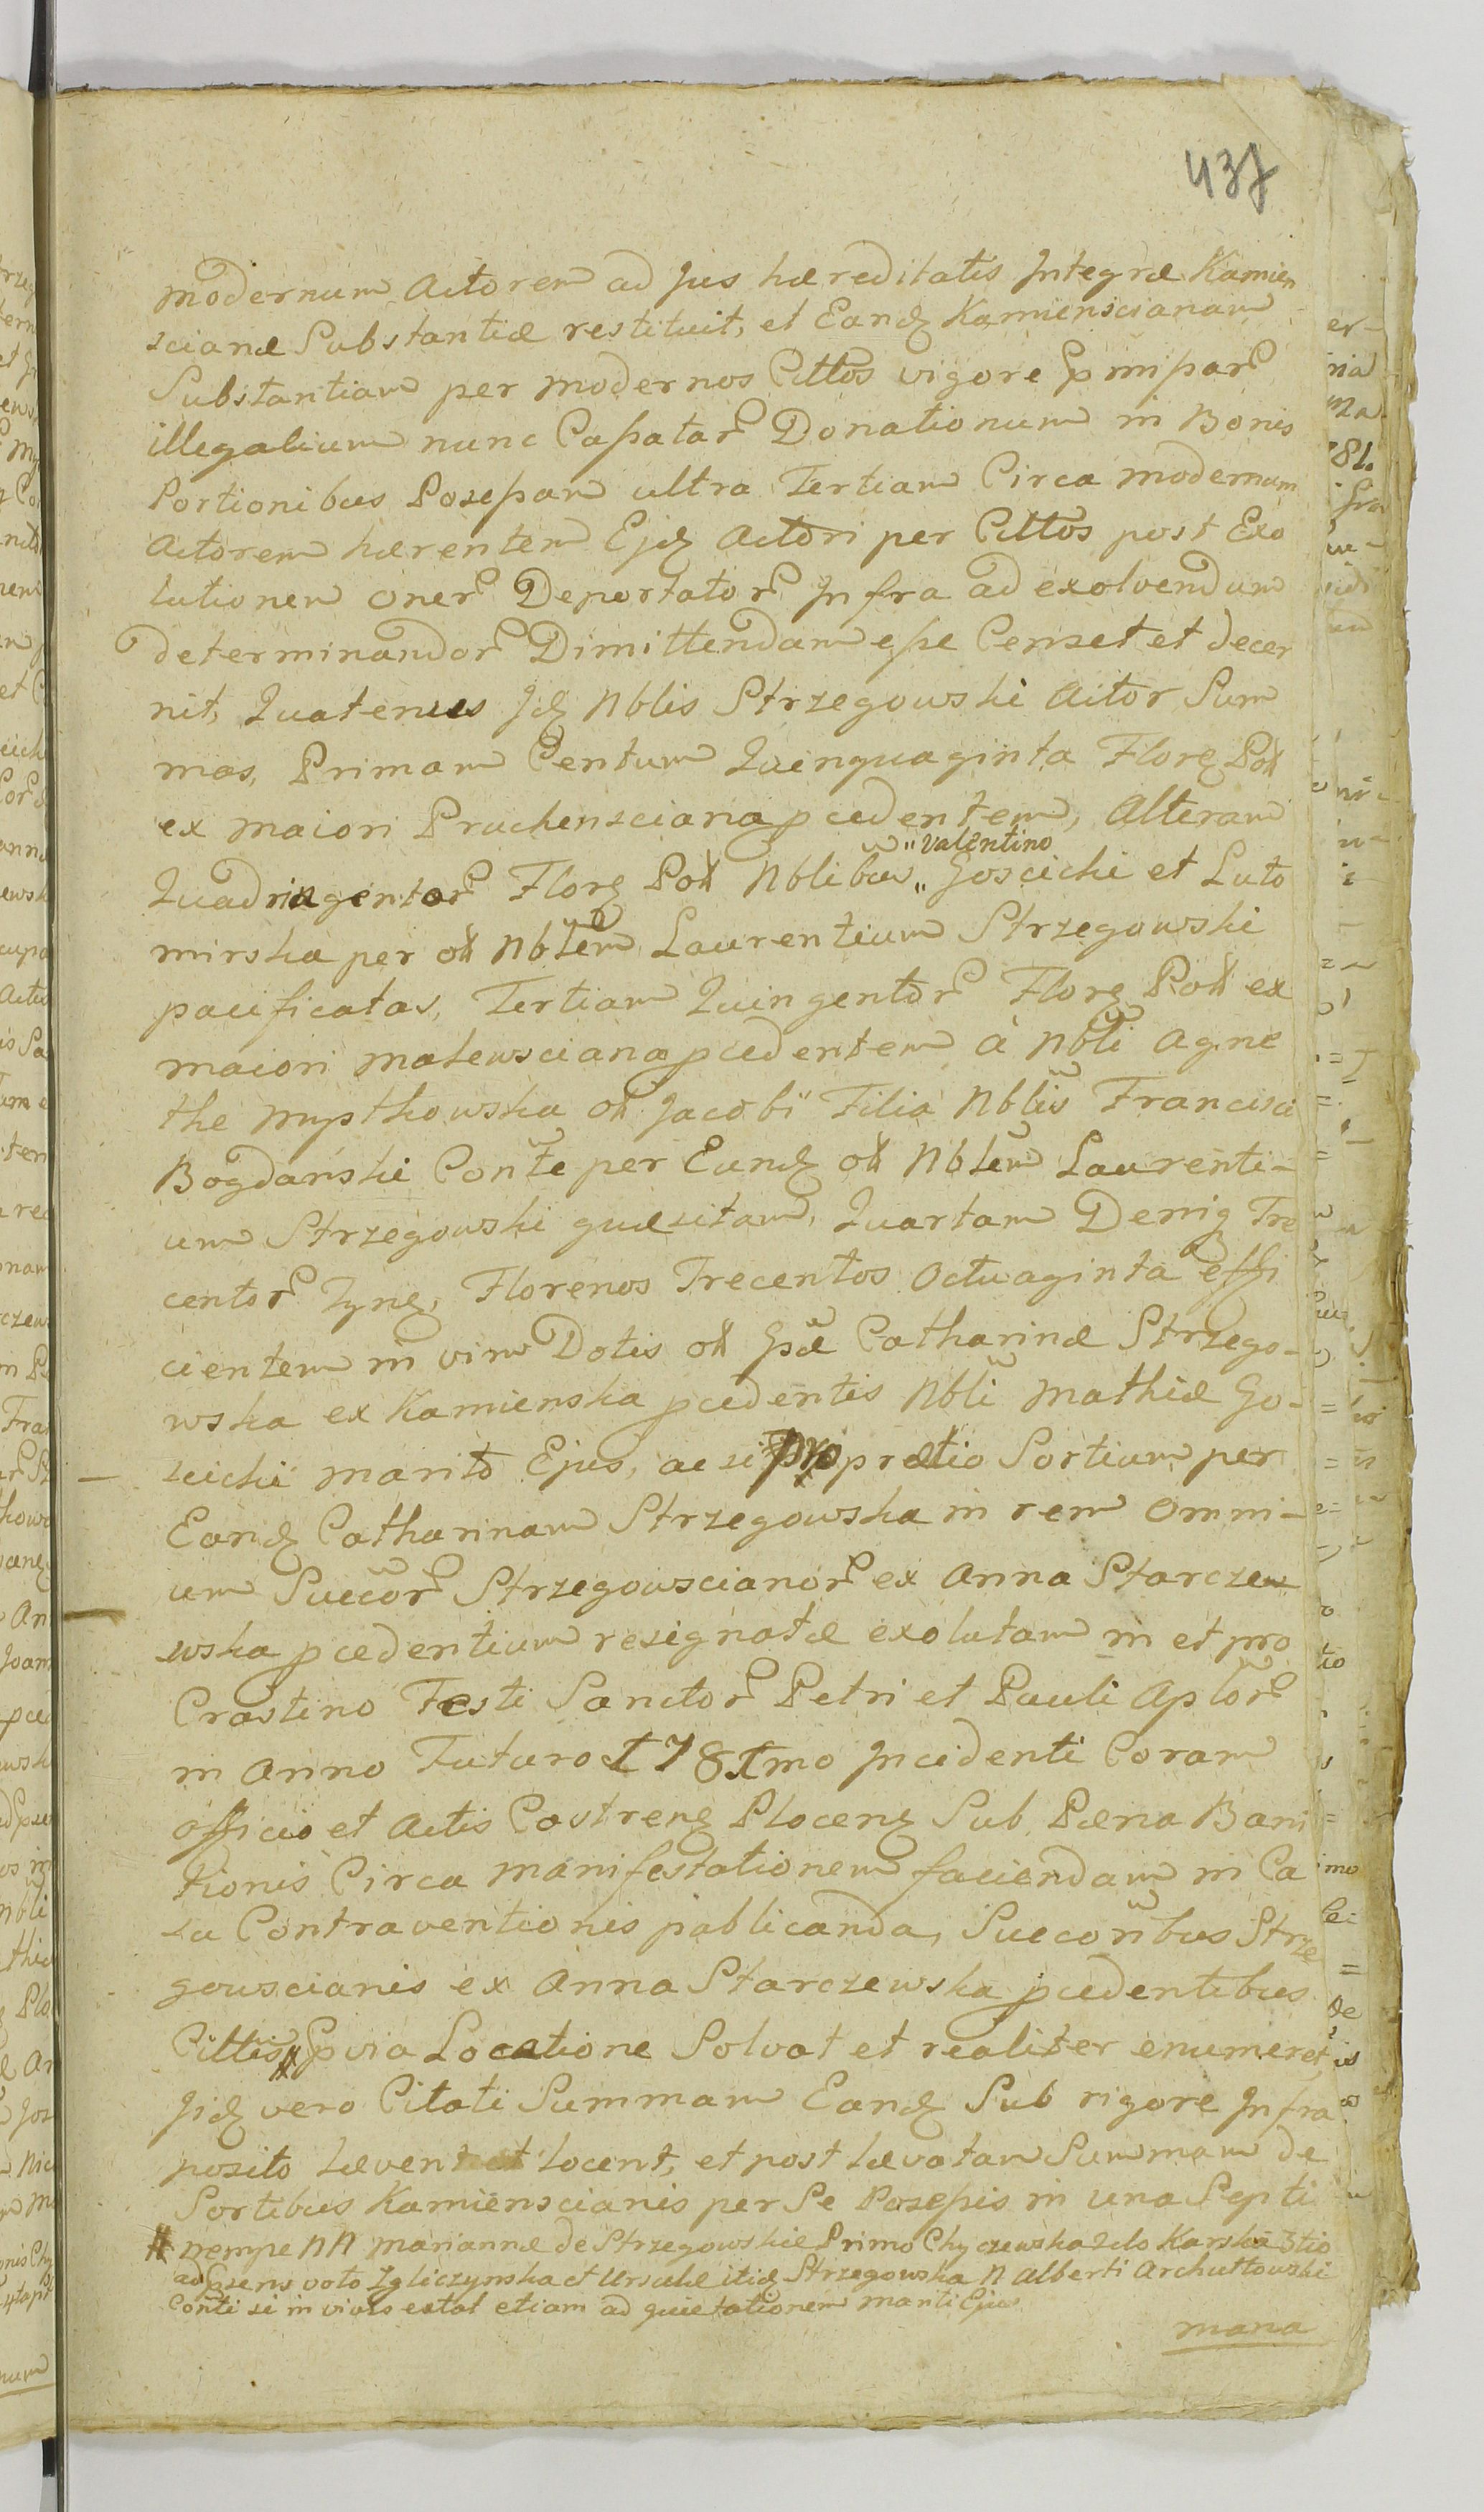 437
modernum Actorem ad Jus hæreditatis Integræ Kamien
scianæ Substantiæ restituit, et Eandꝫ Kamienscianam
Substantiam per modernos Cittos vigore
illegalium nunc Cassatar Donationum in Bonis
Portionibus Possessam ultra Tertiam Circa modernum
Actorem hærentem Ejdꝫ Actori per Cittos post Exo
lutionem oner Deportator Infra ad exolvendum
determinandor Dimittendam esse Censet et decer
nit, Quatenus Idꝫ Nblis Strzegowski Actor Sum
mas, Primam Centum Quinquaginta Florꝫ Poll
ex maiori Pruchensciana pcedentem, Alteram
"Valentino
Quadringentor Florꝫ Poll Nblibus „ Goscicki et Luto
mirska per oll Nblem Laurentium Strzegowski
pacificatas, Tertiam Quingentor Florꝫ Poll ex
maiori matewsciana pcedentem à Nbli Agne
the Mystkowska oll Jacobi Filia Nblis Francisci
Bogdański Conte per Eundꝫ oll Nblem Laurenti-
um Strzegowski quæsitam, Quartam Deniq Tre
centor Tynꝫ, Florenos Trecentos Octuaginta effi
cientem in vim Dotis oll Gsæ Catharinæ Strzego-
wska ex Kamienska pcedentis Nbli Mathiæ Go-
scicki marito Ejus, ac si pro prætio Sortium per
Eandꝫ Catharinam Strzegowska in rem omni-
um Succor Strzegowscianor ex Anna Starczew
wska pcedentium resignatæ exolutam in et pro
Crastino Festi Sanctor Petri et Pauli Aplor
in Anno Futuro 1781mo Incidenti Coram
officio et Actis Castrenꝫ Plocenꝫ Sub Pæna Bani
tionis Circa Manifestationem faciendam in Ca
su Contraventionis publicanda, Succoribus Strze
gowscianis ex Anna Starczewska pcedentibus
Cittis # Pvia Locatione Solvat et realiter enumeret,
Jidꝫ vero Citati Summam Eandꝫ Sub rigore Infra
posito Lævent et locent, et post Lævatam Summam de
Sortibus Kamienscianis per Se Possessis in una Septi
# nempe NN Mariannæ de Strzegowskie Primo Chyczewska 2do Karska 3tio
ad Psens voto Zgliczynska et Ursulæ itidꝫ Strzegowska N Alberti Archutowski
Conti si in vivis extat etiam ad quietationem mariti Ejus
mana